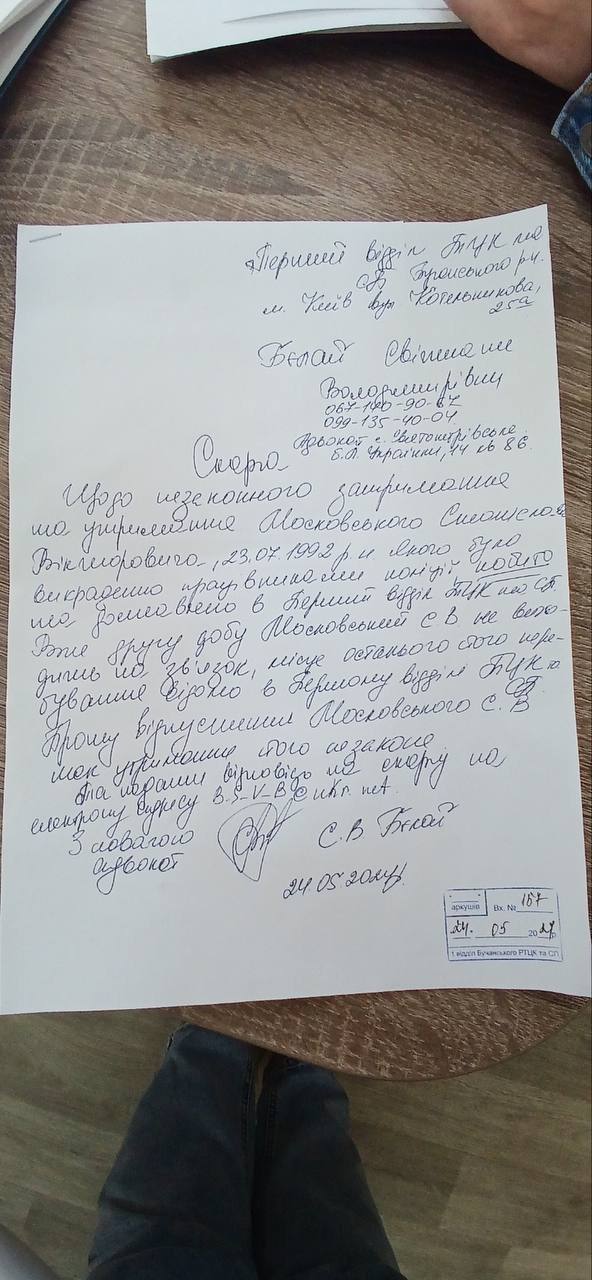 Перший відділ ТЦК та
СП Бучанського р-н.
м. Київ вул Котельникова,
25а
Бєлай Світлани
Володимирівни
067-140-90-67
099-135-40-04
Адвокат с. Святопетрівське
Б.Л. Українки, 14 кв 86.
Скарга
Щодо незаконного затримання
та утримання Московського Станіслава
Вікторовича, 23.07.1992 р.н. якого було
викрадено працівниками поліції, побито
та доставлено в Перший відділ ТЦК та СП.
Вже другу добу Московський С В не вихо-
дить на зв'язок, місце останього його пере-
бування відомо в Першому відділі ТЦК та
СП.
Прошу відпустити Московського С. В
так утримання його незаконе
та надати відповідь на скаргу на
електрону адресу
З повагою
адвокат
С.В. Бєлай
24.05.2024р.
аркушів Вх. № 167
24. 05 2024р
1 відділ Бучанського РТЦК та СП